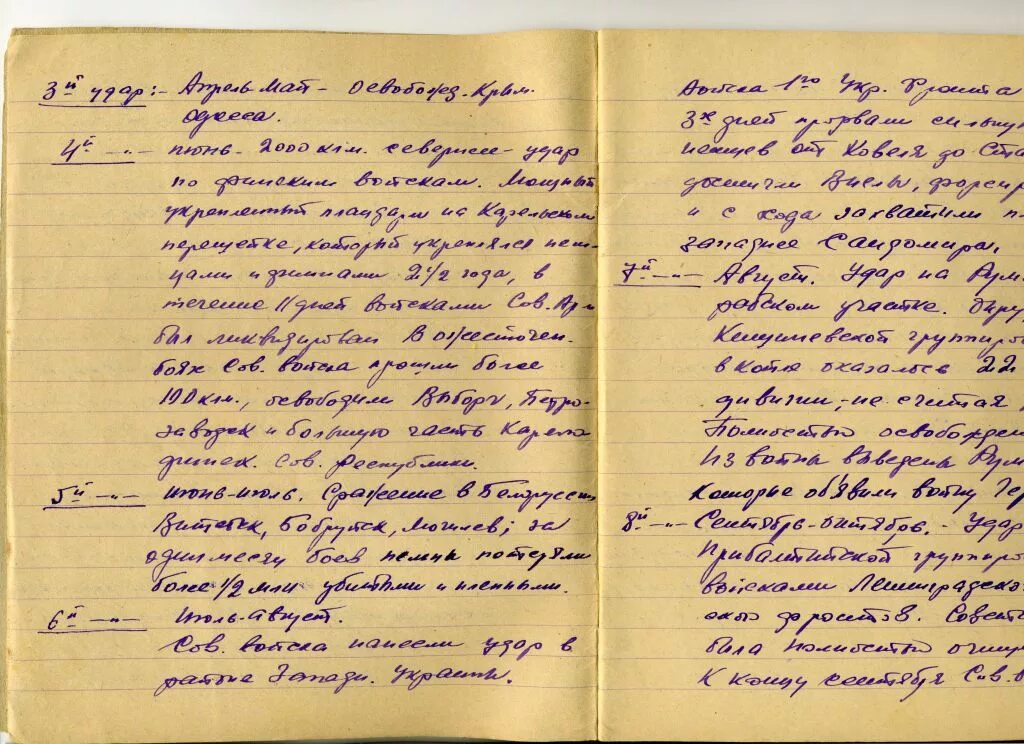 3й удар:- Апрель Май - Освобожд. Крым.
Одесса.
4й -„- июнь. 2000 клм. севернее - удар
по финским войскам. Мощный
укрепленный плацдарм на Карельском
перешейке, который укреплялся нем-
цами и финнами 2 1/2 года, в
течение 11 дней войсками Сов. Арм
был ликвидирован В ожесточен.
боях Сов. войска прошли более
110 клм., освободили Выборг, Петро-
заводск и большую часть Карело
финск. Сов. Республики.
5й -„- июнь-июль. Сражение в Белоруссии
Витебск, Бобруйск, Могилев; за
один месяц боев немцы потеряли
более 1/2 млн убитыми и пленными.
6й -„- Июль-август.
Сов. войска нанесли удар в
районе Западн. Украины.
Войска 1го Укр. Фронта
3х дней прорвали сильну
немцев от Ковеля до Ста
достигли Вислы, форсир
и с хода захватили пл
западнее Сандомира.
7й -„- Август. Удар на Рум
рабском участке. Окру
Кишиневской группиро
в котле оказалось 22
дивизии, не считая
Полностью освобожде
Из войны выведены Рум
которые объявили войну Гер
8й -„- Сентябрь-октябрь. - Удар
Прибалтийской группиро
войсками Ленинградско
ского фронтов. Советс
была полностью очищ
К концу сентября Сов.